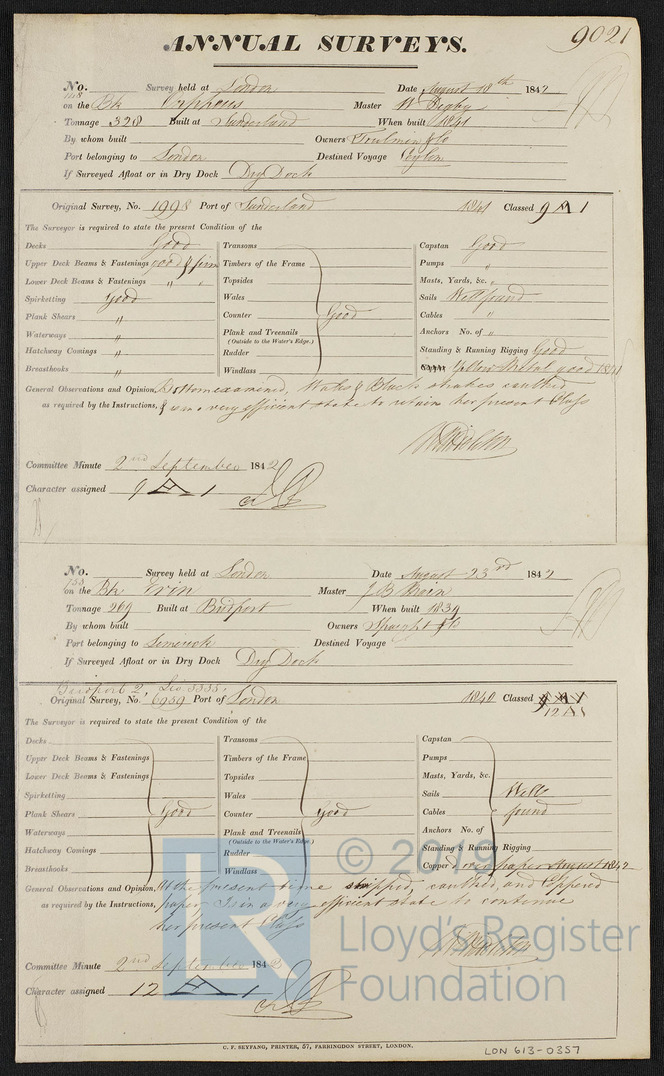 9021
ANNUAL SURVEYS.
No. Survey held at London Date August 18th 1842
on the Bk Orpheus Master
Tonnage 328 Built at Sunderland When built 1841
By whom built Owners &Co
Port belonging to London Destined Voyage Ceylon
If Surveyed Afloat or in Dry Dock Dry Dock
Original Survey, No. 1998 Port of Sunderland 1841 Classed 9 A 1
The Surveyor is required to state the present Condition of the
Decks Good
Upper Deck Beams & Fastenings good & firm
Lower Deck Beams & Fastenings " "
Spirketting Good
Plank Shears "
Waterways "
Hatchway Comings "
Breasthooks "
Transoms
Timbers of the Frame
Topsides
Wales
Counter Good
Plank and Treenails
(Outside to the Water's Edge.)
Rudder
Windlass
Capstan Good
Pumps "
Masts, Yards, &c. "
Sails Well found
Cables "
Anchors No. of "
Standing & Running Rigging Good
Yellow Metal good 1841
General Observations and Opinion, Bottom examined, Wales & Black strakes caulked
as required by the Instructions, & is in a very efficient state to retain her present Class
Committee Minute 2nd September 1842
Character assigned 9 A 1
No. Survey held at London Date August 23rd 1842
on the Bk Erin Master J B
Tonnage 269 Built at Bridport When built 1839
By whom built Owners Spaight & Co
Port belonging to Limerick Destined Voyage
If Surveyed Afloat or in Dry Dock Dry Dock
Bridport 2,
Original Survey, No. 6959 Port of London 1840 Classed 9 A 1
12 A 1
The Surveyor is required to state the present Condition of the
Decks
Upper Deck Beams & Fastenings
Lower Deck Beams & Fastenings
Spirketting
Plank Shears Good
Waterways
Hatchway Comings
Breasthooks
Transoms
Timbers of the Frame
Topsides
Wales
Counter Good
Plank and Treenails
(Outside to the Water's Edge.)
Rudder
Windlass
Capstan
Pumps
Masts, Yards, &c.
Sails Well
Cables found
Anchors No. of
Standing & Running Rigging
Copper'd over paper August 1842
General Observations and Opinion, At the present time stripped, caulked, and Coppered
as required by the Instructions, paper & is in a very efficient state to continue
her present Class
Committee Minute 2nd September 1842
Character assigned 12 A 1
C. F. SEYFANG, PRINTER, 57, FARRINGDON STREET, LONDON.
LON 613-0357
LR
© 2019
Lloyd's Register
Foundation